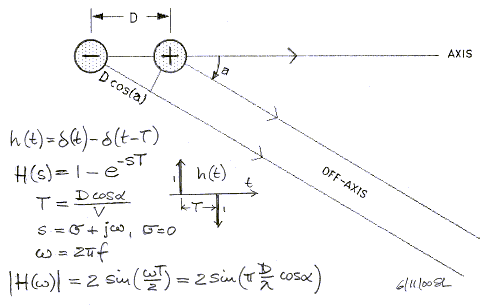 D
− +
AXIS
a
D cos(a)
OFF-AXIS
h(t) = δ(t) − δ(t−T)
H(s) = 1 − e^{-sT}
T = D cosα / V
s = σ + jω, σ=0
ω = 2πf
|H(ω)| = 2 sin(ωT/2) = 2 sin(π D/λ cosα)
1 h(t) t
T
1
6/11/00 SL